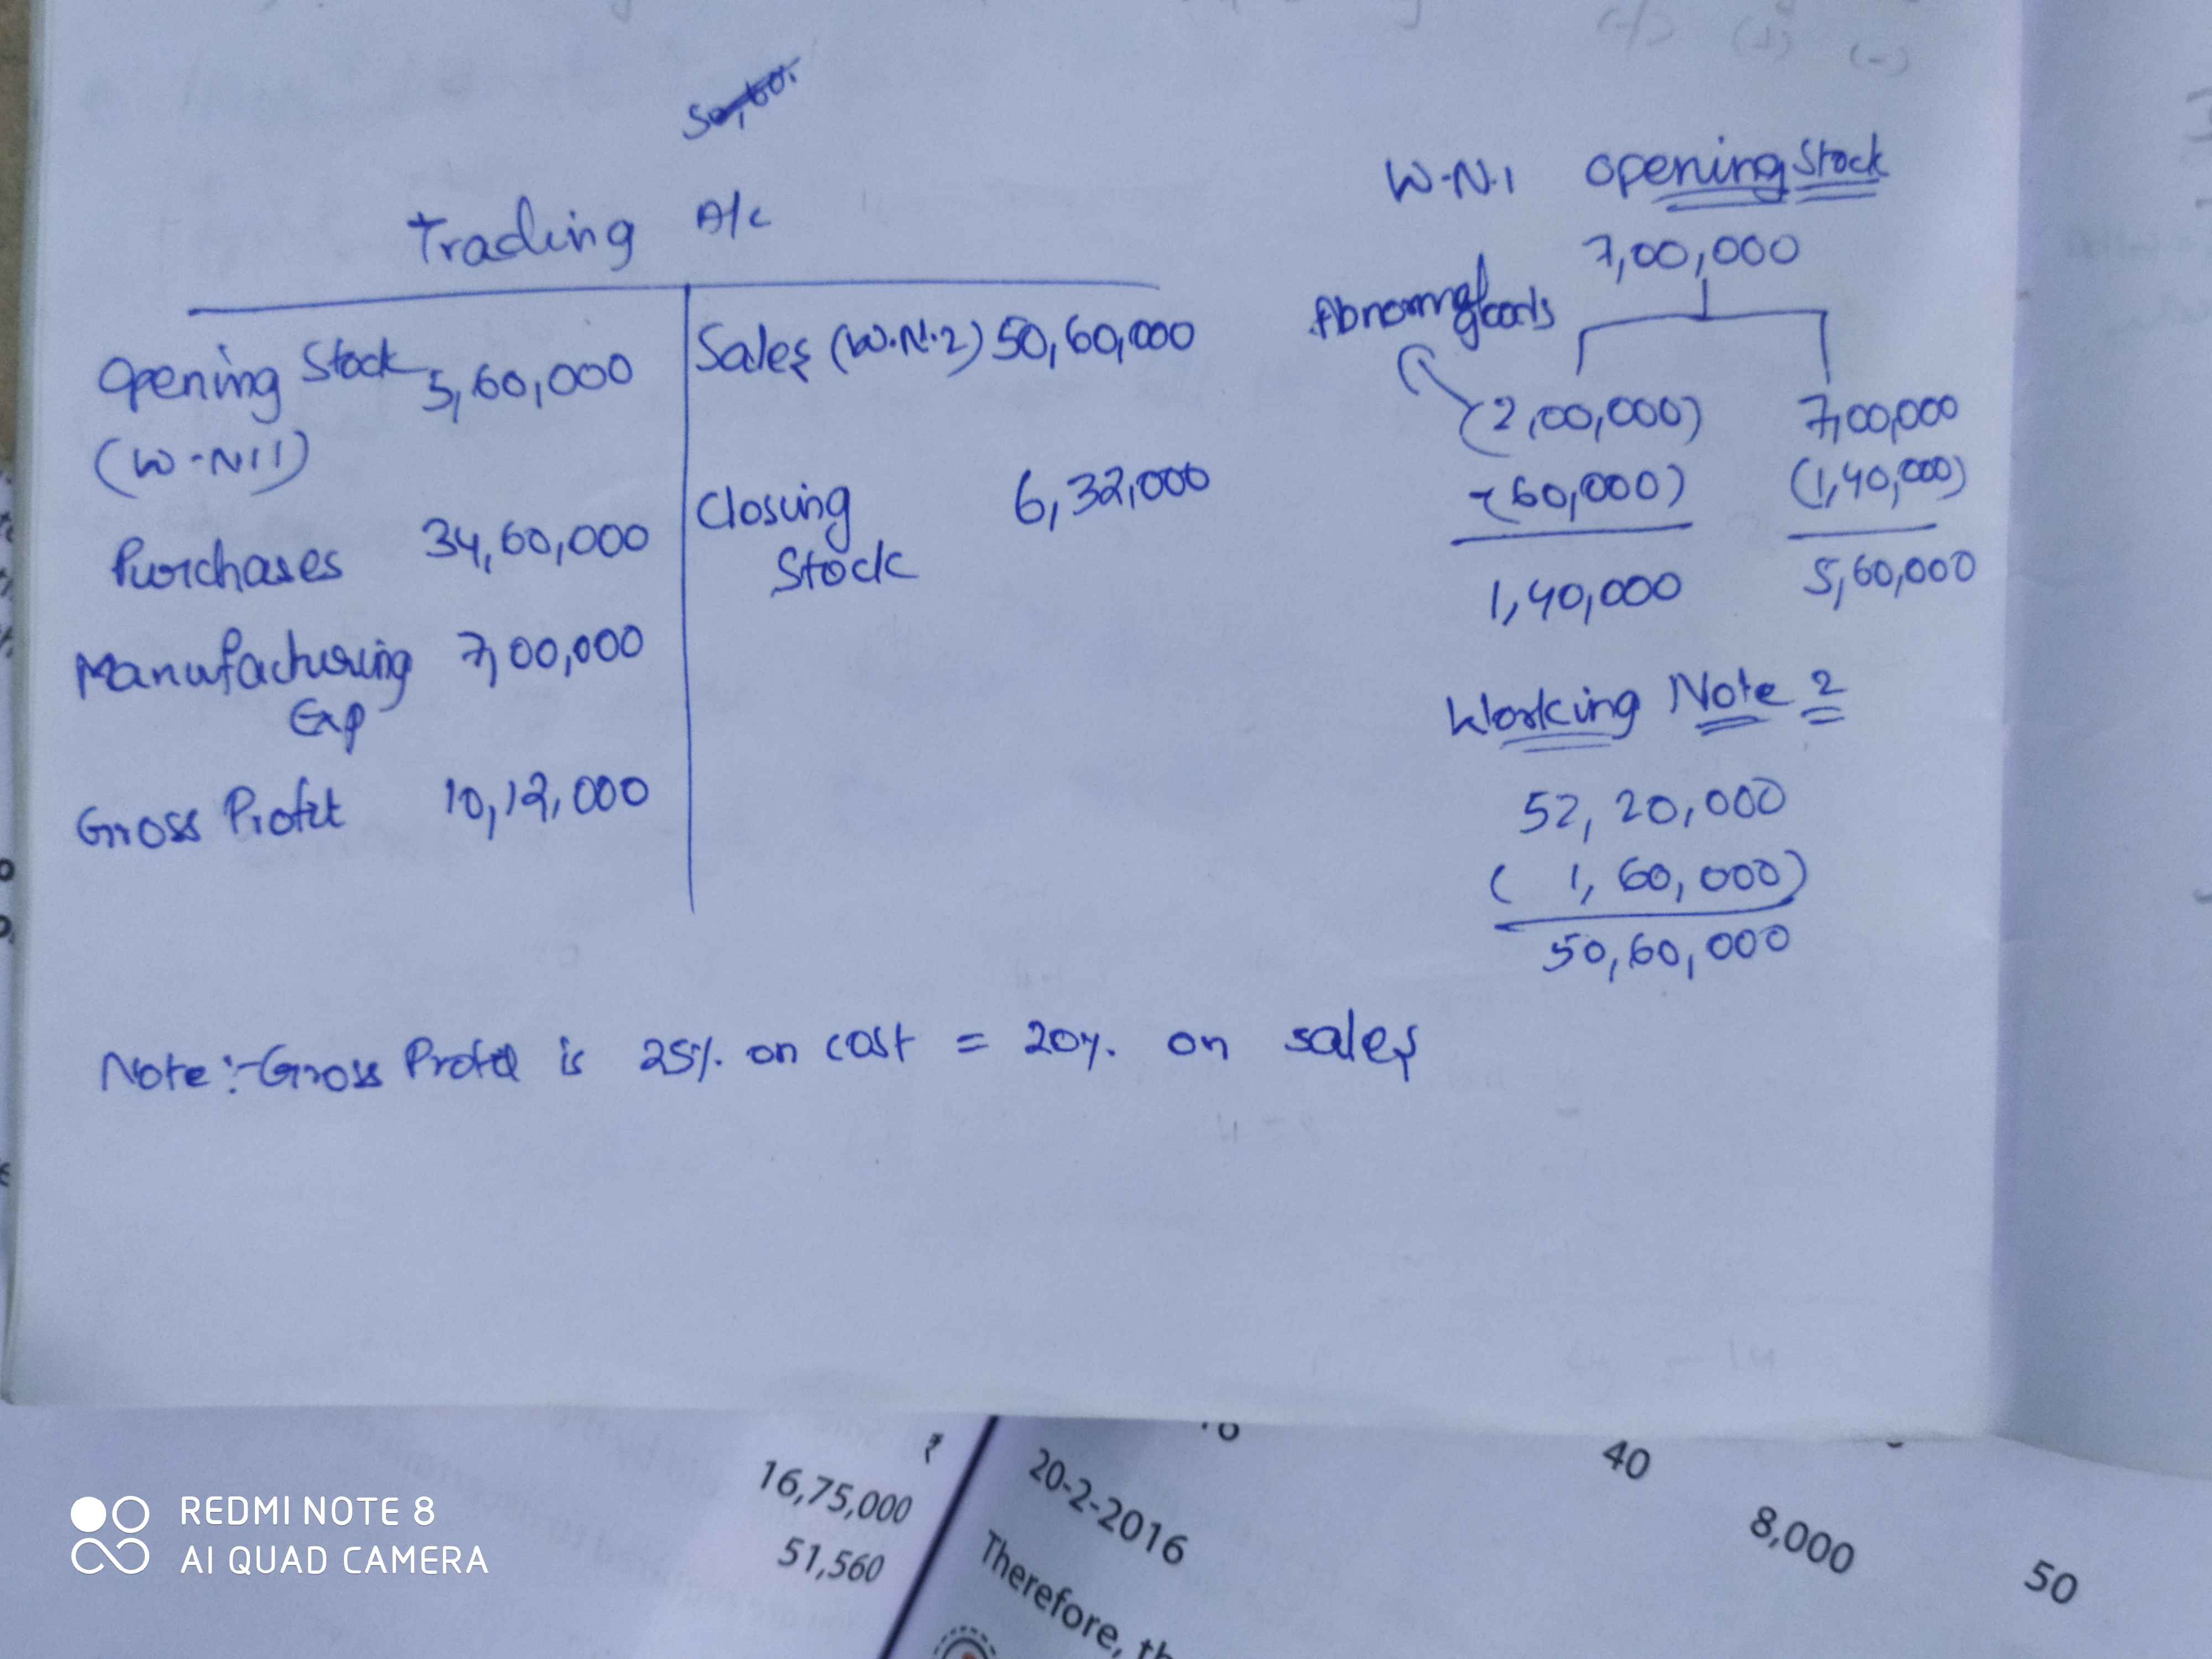 Trading A/c
Opening Stock 5,60,000
(W-N11)
Purchases 34,60,000
Manufacturing 7,00,000
Exp
Gross Profit 10,12,000
Sales (W.N.2) 50,60,000
Closing 6,32,000
Stock
W-N.1 Opening Stock
7,00,000
Abnormal goods
(2,00,000) 7,00,000
(60,000) (1,40,000)
1,40,000 5,60,000
Working Note 2
52,20,000
(1,60,000)
50,60,000
Note:-Gross Profit is 25% on cost = 20%. on sales
₹
16,75,000
51,560
20-2-2016
Therefore,
40
8,000
50
REDMI NOTE 8
AI QUAD CAMERA